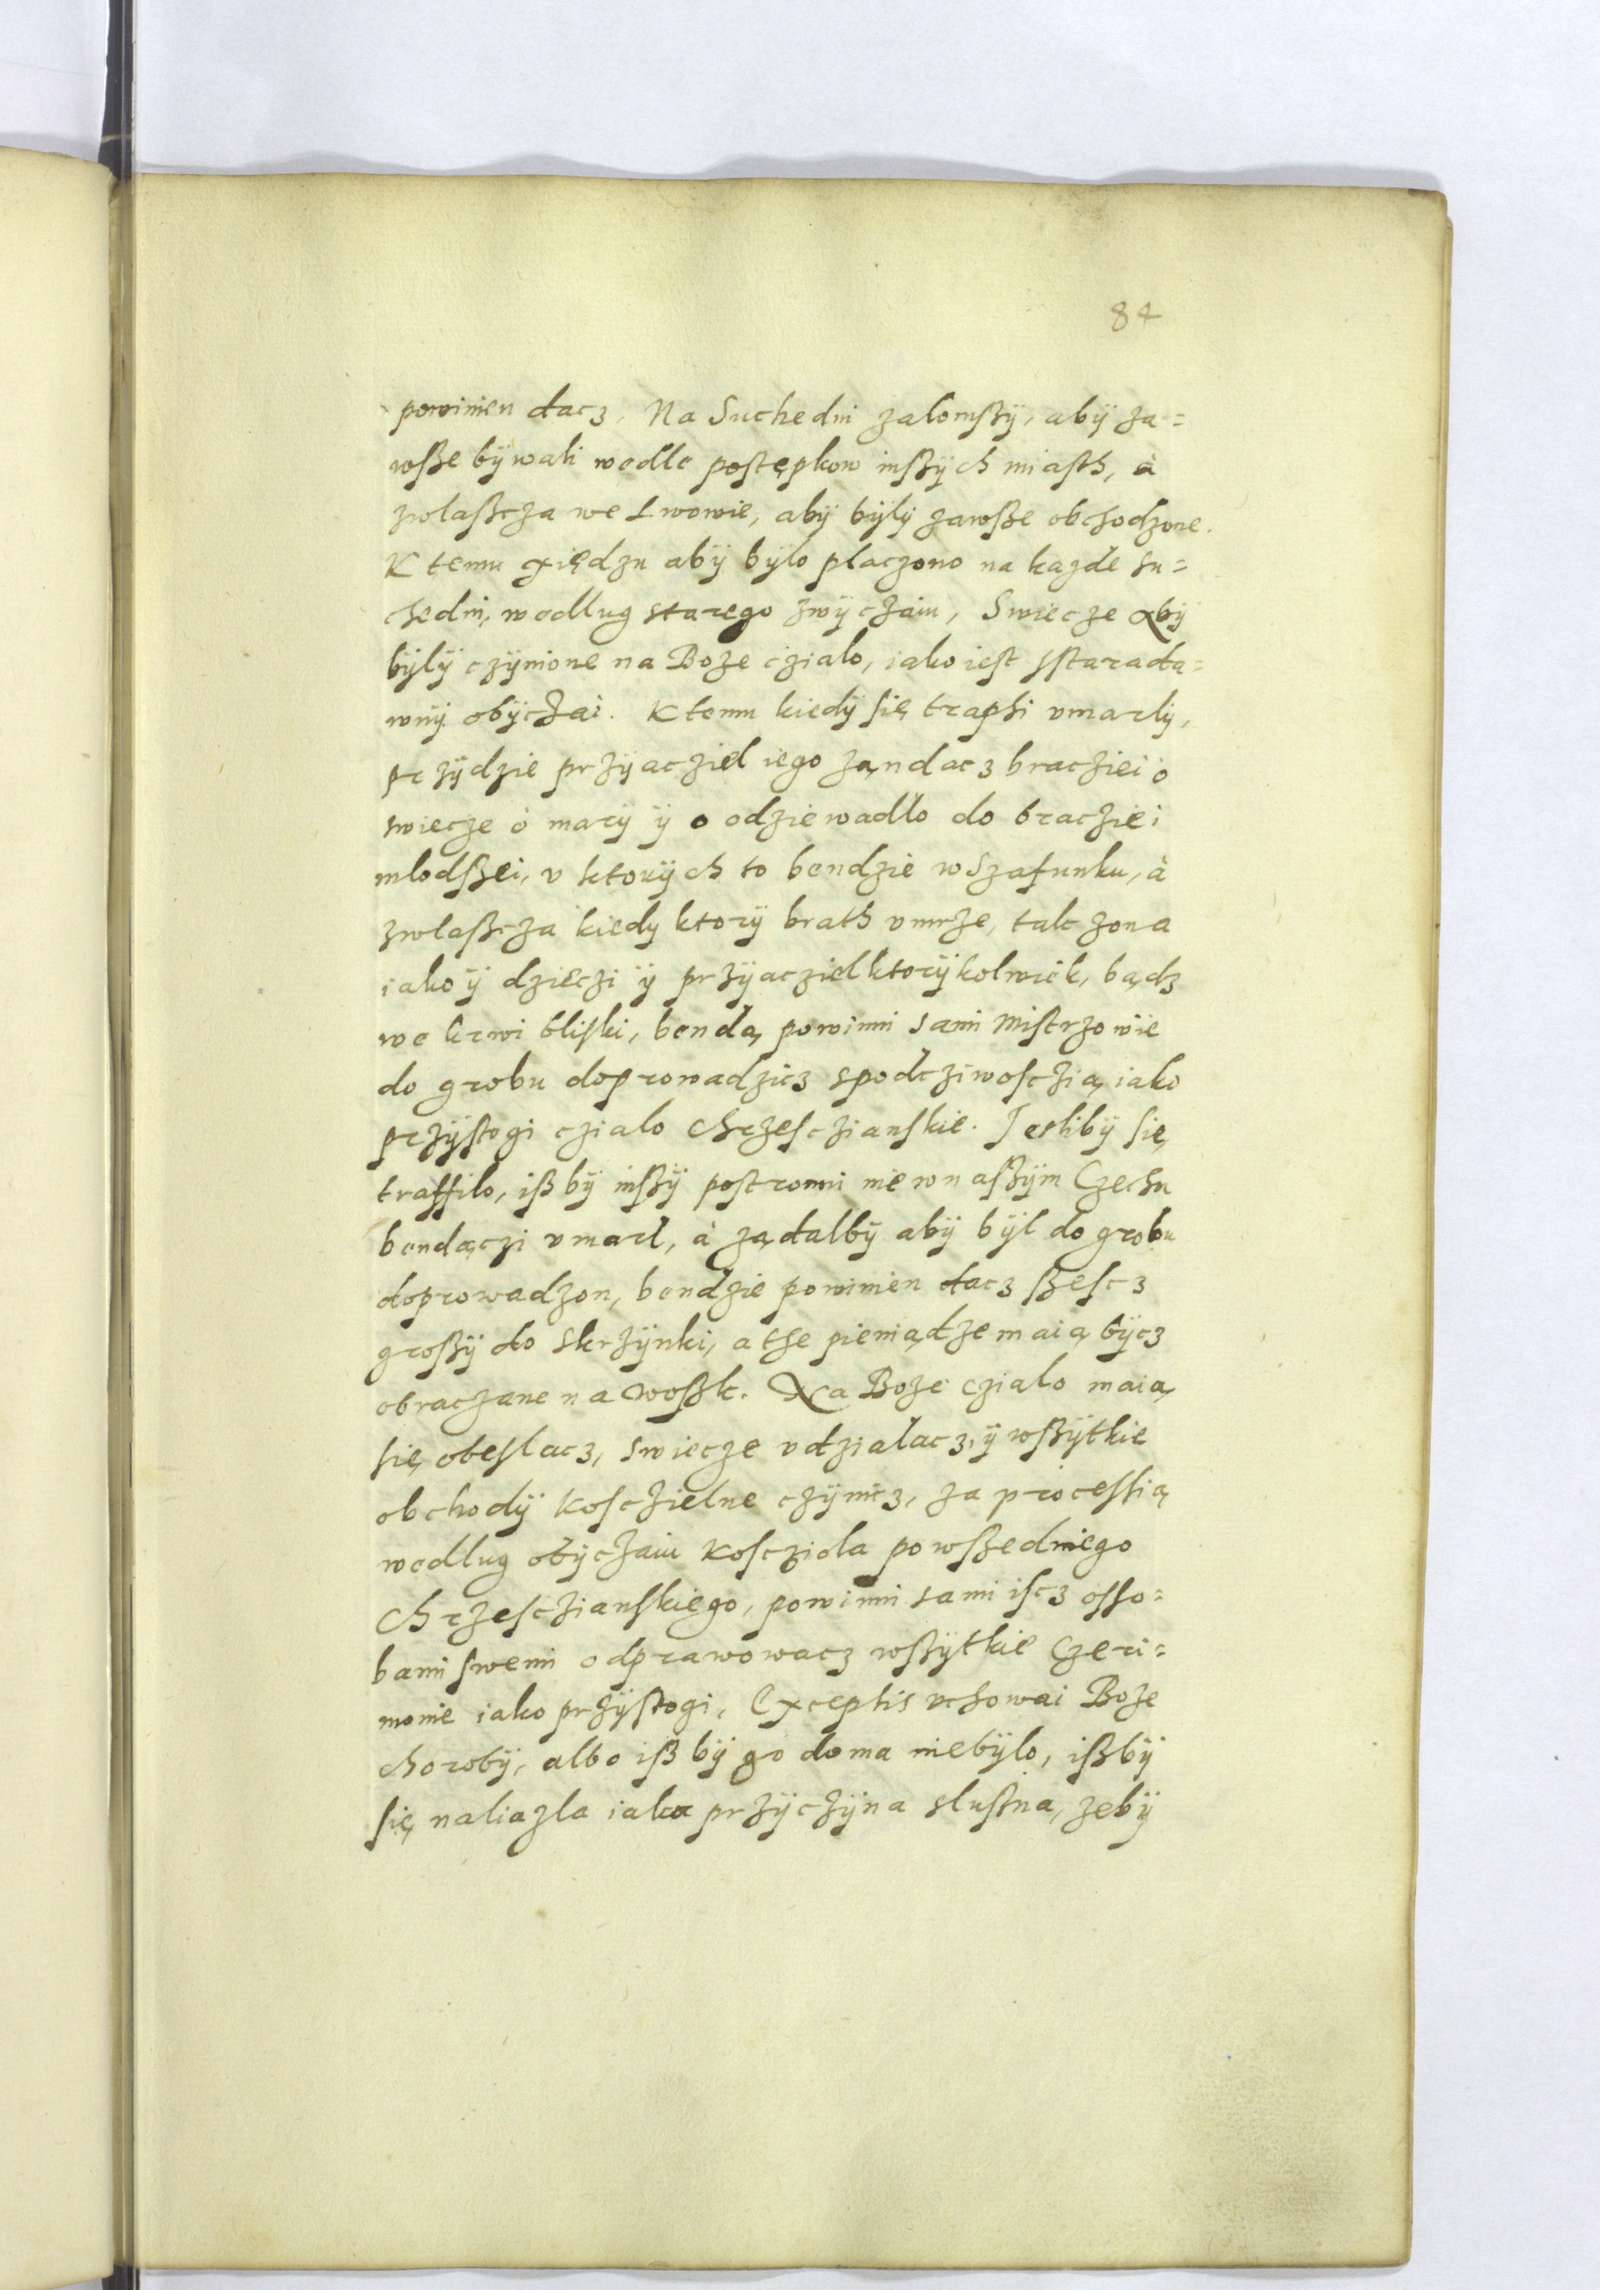 84
powinien dacz. Na Suchedni zalomszÿ, abÿ za=
wsze bÿwali wedle postępkow inszÿch miasth, à
zwlaszcza we Lwowie, abÿ bÿlÿ zawsze obchodzone.
K temu xiędzu abÿ bÿlo placzono na kazde su=
chedni, wedlug starego zwÿczaiu, Swiecze abÿ
bÿlÿ czÿnione na Boze czialo, iako iest sstarada=
wnÿ obÿczai. K temu kiedÿ się traphi vmarlÿ,
przÿdzie przÿacziel iego ząndacz bracziei o
swiecze o marÿ ÿ o odziewadlo do bracziei
mlodszei, v ktorÿch to bendzie w Szafunku, à
zwlaszcza kiedy ktorÿ brath vmrze, tak zona
iako ÿ dzieczi ÿ przÿacziel ktorÿkolwiek, bądz
we krwi bliski, bendą powinni sami Mistrzowie
do grobu doprowadzicz spodcziwosczią iako
przÿstogi czialo chrzesczianskie. Jesliby się
traffilo, isz bÿ inszÿ postronni nie w naszÿm Czechu
bendączi vmarl, à ządalbÿ abÿ bÿl do grobu
doprowadzon, bendzie powinien dacz szescz
groszÿ do skrzÿnki, a the pieniądze maią bÿcz
obraczane na woszk. Na Boze czialo maią
się obeslacz, swiecze vdzialacz, ÿ wszÿtkie
obchodÿ Kosczielne czÿnicz, za processią
wedlug obÿczaiu Kosciola powszedniego
Chrzesczianskiego, powinni sami iscz osso=
bami swemi odprawowacz wszÿtkie Czeri=
monie iako przÿstogi, Exceptis vchowai Boze
chorobÿ, albo isz bÿ go doma niebÿlo, iszbÿ
się naliazla iaka przÿczÿna slusna, zebÿ